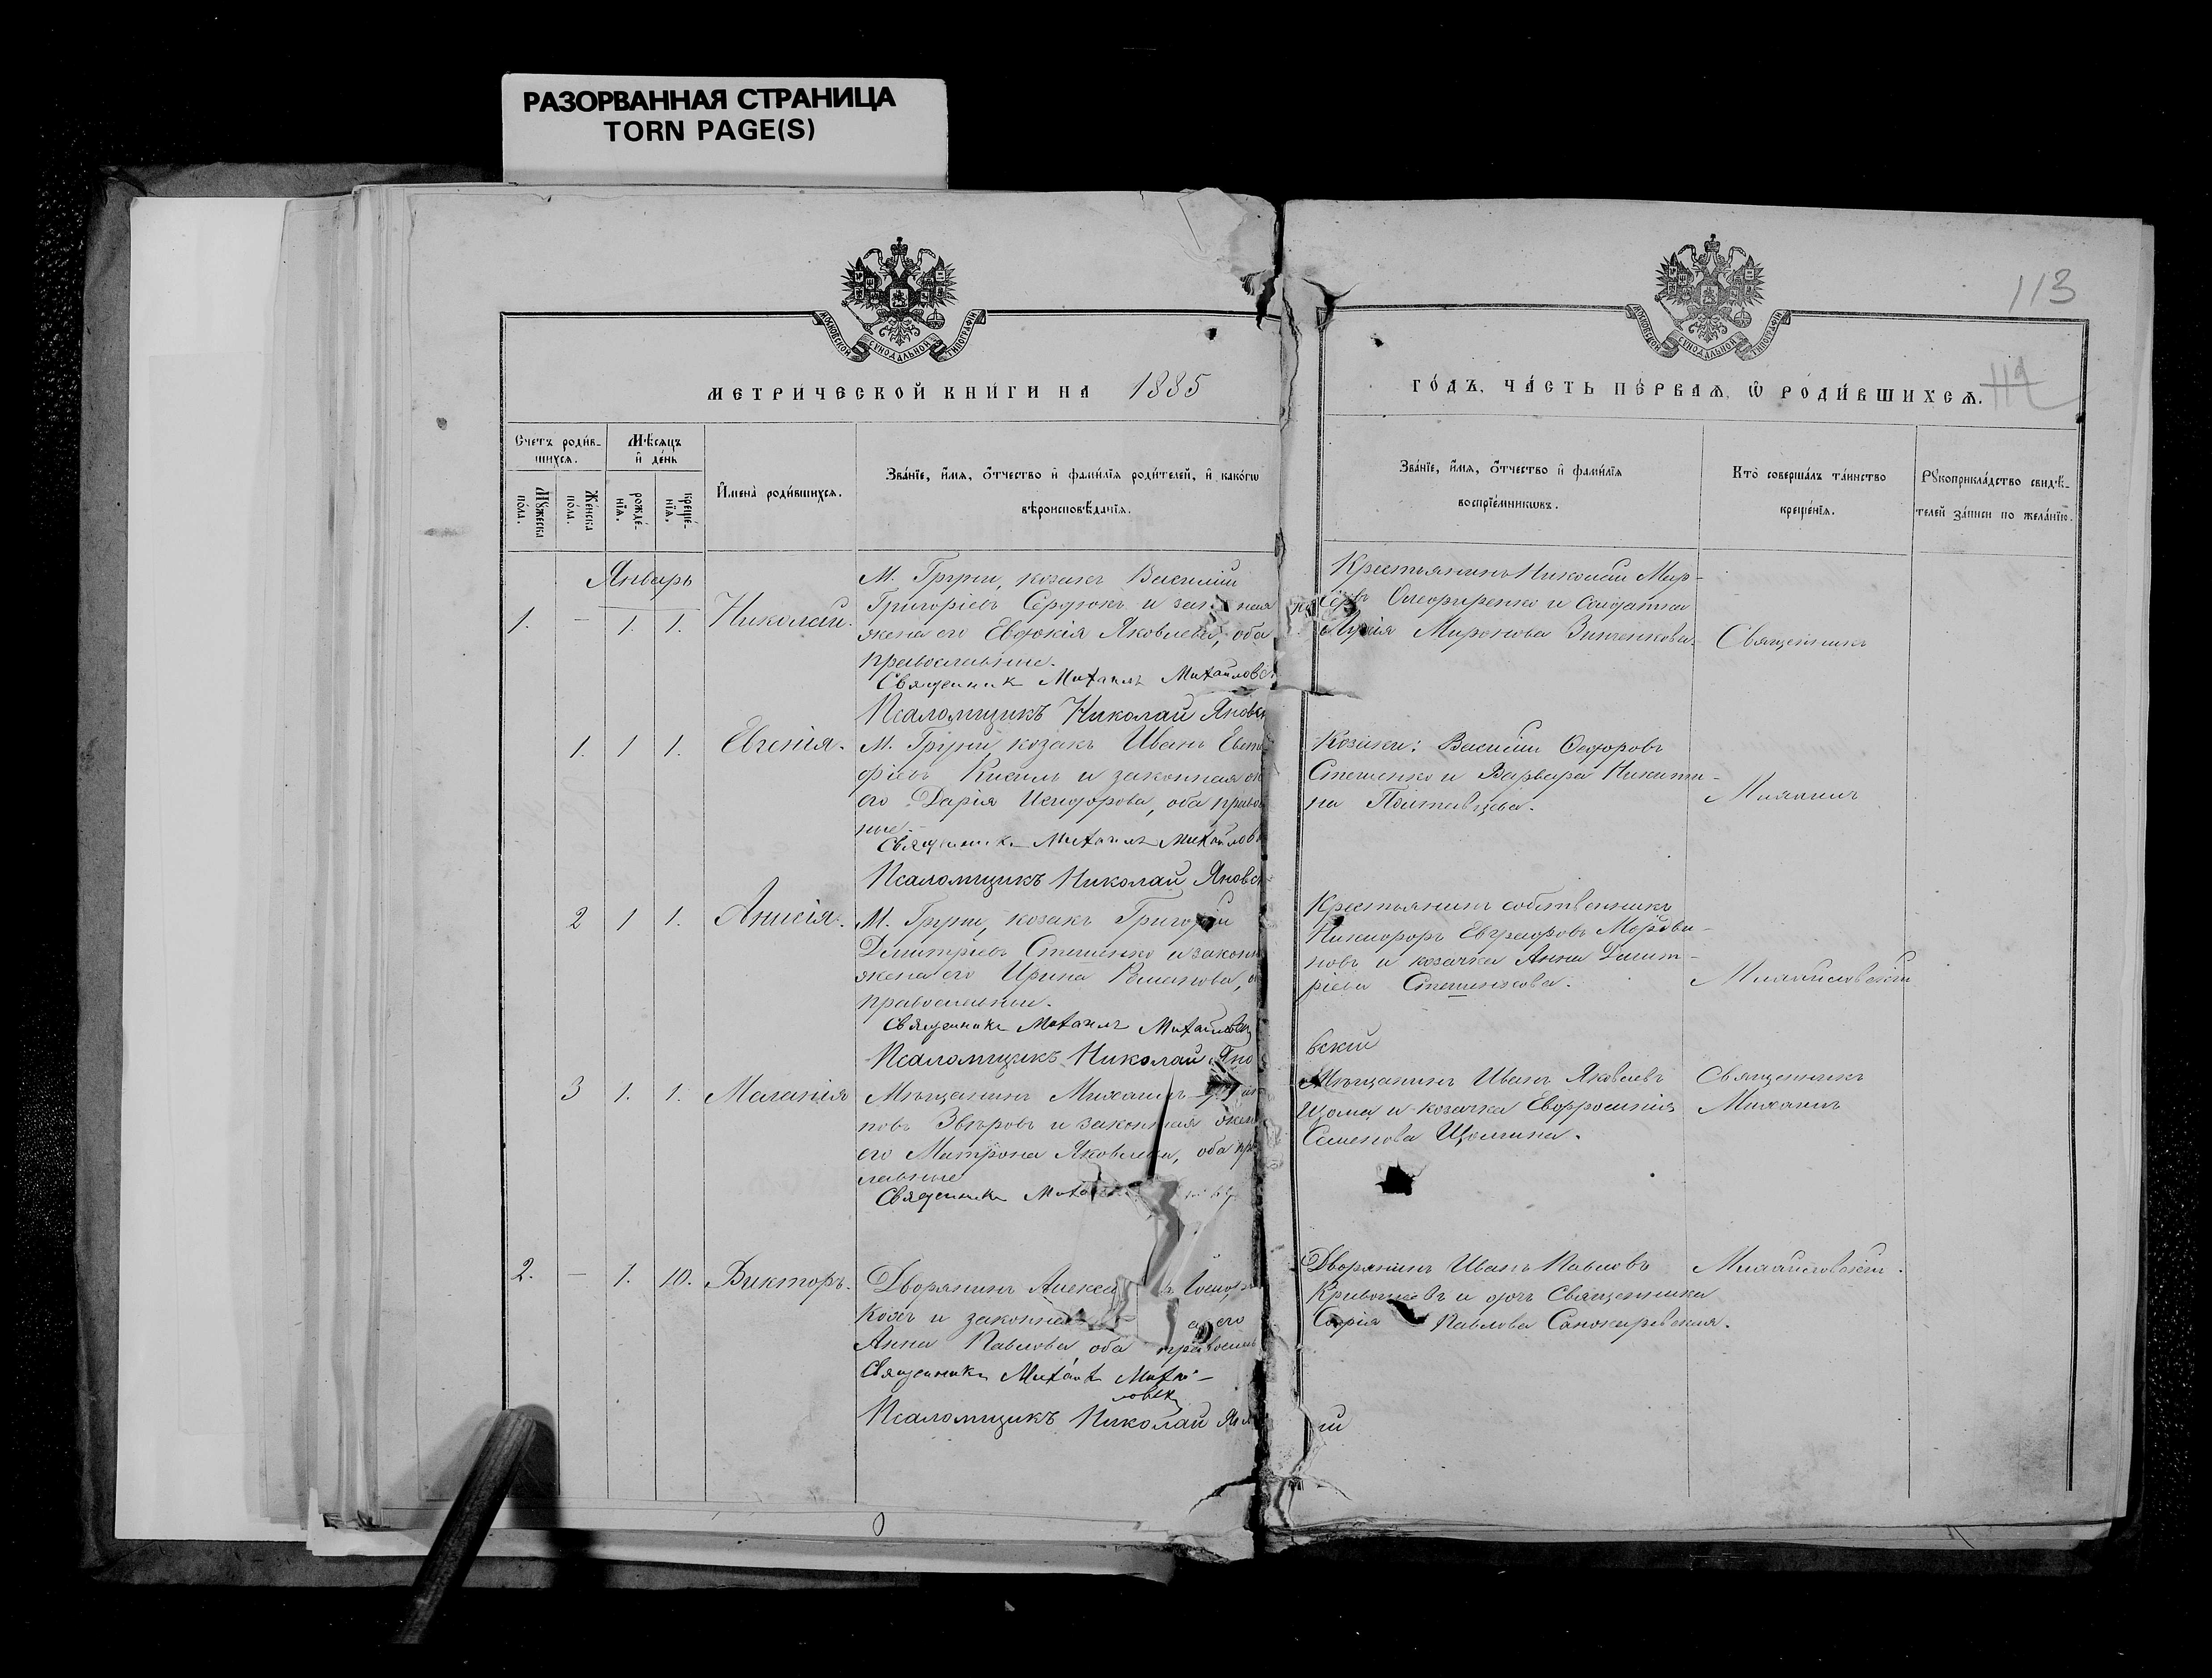 РАЗОРВАННАЯ СТРАНИЦА
TORN PAGE(S)
113
МОСКОВСКОЙ СѴНОДАЛЬНОЙ ТИПОГРАФІИ
МОСКОВСКОЙ СѴНОДАЛЬНОЙ ТИПОГРАФІИ
МЕТРИ́ЧЕСКОЙ КНИ́ГИ НА 1885
ГО́ДЪ, ЧА́СТЬ ПЕ́РВАЯ, Ѡ РОДИ́ВШИХСЯ.
Счетъ роди́в-
шихся.
Мѣсяцъ
и де́нь
Мꙋжеска по́ла.
Женска по́ла.
рожде́-нїя.
креще́-нїя.
Имена̀ роди́вшихся.
Зва́нїе, и҆́мя, ѻ҆́тчество и҆ фами́лїя роди́телей, и҆ како́гѡ
вѣроисповѣ́данїя.
Зва́нїе, и҆́мя, ѻ҆́тчество и҆ фами́лїя
воспрїе́мникѡвъ.
Кто̀ соверша́лъ та́инство
креще́нїя.
Рꙋкоприкла́дство свидѣ́-
телей за́писи по жела́нїю.
Январь
1. - 1. 1. Николай.
М. Груни, козакъ Василій
Григоріевъ Сердюкъ и зак ная
жена его Евдокія Яковлева, оба
православные.
Священник Михаилъ Михайловск
Псаломщикъ Николай Яновск
Крестьянинъ Николай Мир-
Олефиренко и Солдатка
Миронова Зинченкова.
Священникъ
1. 1 1. Евгенія.
М. Груни, козакъ Иванъ Евст
фіевъ Кисиль и законная
его Дарія Исидорова, оба право
ные.
Священникъ Михаилъ Михайловс
Псаломщикъ Николай Яновск
Козаки: Василій Федоровъ
Стешенко и Варвара Никити-
на Полтавцева.
Михаилъ
2 1 1. Анисія.
М. Груни, козакъ Григорій
Димитріевъ Стешенко и законн
жена его Ирина Романова, о
православные.
Священникъ Михаилъ Михайловск
Псаломщикъ Николай Яно
вскій
Крестьянинъ собственникъ
Никифоръ Мордви-
новъ и козачка Анна Димит-
ріева Стешенкова.
Михайловскій
3 1. 1. Маланія
Мѣщанинъ Михаилъ
новъ Звѣровъ и законная жен
его Матрона Яковлева, оба пра
лавные
Священникъ Миха
Мѣщанинъ Иванъ Яковлевъ
Цома и козачка Евфросинія
Семенова Цомина.
Священникъ
Михаилъ
2. - 7. 10. Викторъ.
Дворянинъ Алекса
и законна его
Анна Павлова оба правосла
Священникъ Михаил Михай-
ловск
Псаломщикъ Николай Ян
ій
Дворянинъ Иванъ Павловъ
и дочь Священника
Софія Павлова
Михайловскій.